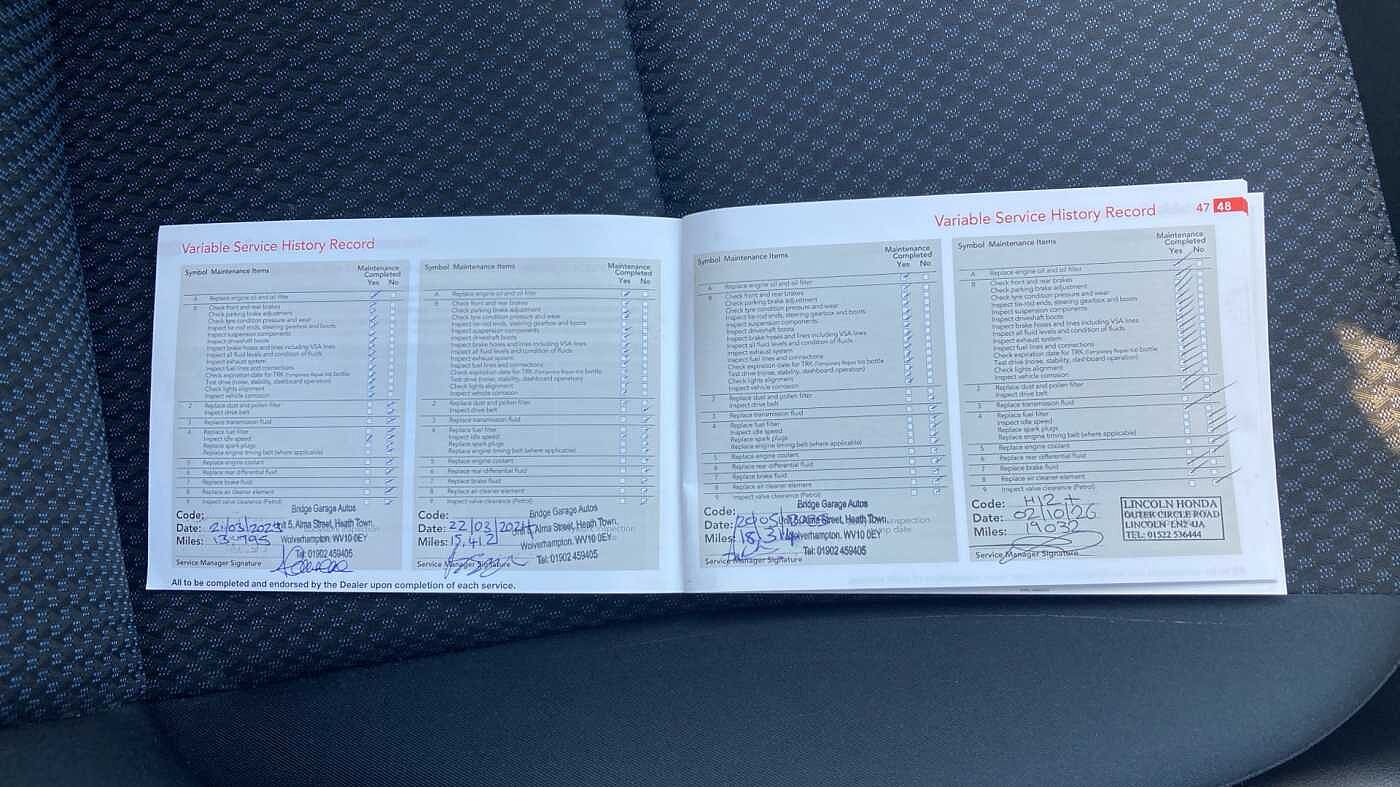 Variable Service History Record
Symbol Maintenance Items
Maintenance
Completed
Yes No
A Replace engine oil and oil filter
B Check front and rear brakes
Check parking brake adjustment
Check tyre condition pressure and wear
Inspect tie-rod ends, steering gearbox and boots
Inspect suspension components
Inspect driveshaft boots
Inspect brake hoses and lines including VSA lines
Inspect all fluid levels and condition of fluids
Inspect exhaust system
Inspect fuel lines and connections
Check expiration date for TRK (Temporary Repair Kit) bottle
Test drive (noise, stability, dashboard operation)
Check lights alignment
Inspect vehicle corrosion
2 Replace dust and pollen filter
Inspect drive belt
3 Replace transmission fluid
4 Replace fuel filter
Inspect idle speed
Replace spark plugs
Replace engine timing belt (where applicable)
5 Replace engine coolant
6 Replace rear differential fluid
7 Replace brake fluid
8 Replace air cleaner element
9 Inspect valve clearance (Petrol)
Bridge Garage Autos
Code:
Unit 5, Alma Street, Heath Town,
Date:
Wolverhampton. WV10 0EY
Miles:
Tel: 01902 459405
Service Manager Signature
All to be completed and endorsed by the Dealer upon completion of each service.
Symbol Maintenance Items
Maintenance
Completed
Yes No
A Replace engine oil and oil filter
B Check front and rear brakes
Check parking brake adjustment
Check tyre condition pressure and wear
Inspect tie-rod ends, steering gearbox and boots
Inspect suspension components
Inspect driveshaft boots
Inspect brake hoses and lines including VSA lines
Inspect all fluid levels and condition of fluids
Inspect exhaust system
Inspect fuel lines and connections
Check expiration date for TRK (Temporary Repair Kit) bottle
Test drive (noise, stability, dashboard operation)
Check lights alignment
Inspect vehicle corrosion
2 Replace dust and pollen filter
Inspect drive belt
3 Replace transmission fluid
4 Replace fuel filter
Inspect idle speed
Replace spark plugs
Replace engine timing belt (where applicable)
5 Replace engine coolant
6 Replace rear differential fluid
7 Replace brake fluid
8 Replace air cleaner element
9 Inspect valve clearance (Petrol)
Bridge Garage Autos
Code:
Date: 22/03/2024
Alma Street, Heath Town,
Miles: 15,412
Wolverhampton. WV10 0EY
Tel: 01902 459405
Service Manager Signature
Variable Service History Record 47 48
Symbol Maintenance Items
Maintenance
Completed
Yes No
A Replace engine oil and oil filter
B Check front and rear brakes
Check parking brake adjustment
Check tyre condition pressure and wear
Inspect tie-rod ends, steering gearbox and boots
Inspect suspension components
Inspect driveshaft boots
Inspect brake hoses and lines including VSA lines
Inspect all fluid levels and condition of fluids
Inspect exhaust system
Inspect fuel lines and connections
Check expiration date for TRK (Temporary Repair Kit) bottle
Test drive (noise, stability, dashboard operation)
Check lights alignment
Inspect vehicle corrosion
2 Replace dust and pollen filter
Inspect drive belt
3 Replace transmission fluid
4 Replace fuel filter
Inspect idle speed
Replace spark plugs
Replace engine timing belt (where applicable)
5 Replace engine coolant
6 Replace rear differential fluid
7 Replace brake fluid
8 Replace air cleaner element
9 Inspect valve clearance (Petrol)
Bridge Garage Autos
Code:
Unit 5, Alma Street, Heath Town,
Date:
Wolverhampton. WV10 0EY
Miles: 18,314
Tel: 01902 459405
Service Manager Signature
Symbol Maintenance Items
Maintenance
Completed
Yes No
A Replace engine oil and oil filter
B Check front and rear brakes
Check parking brake adjustment
Check tyre condition pressure and wear
Inspect tie-rod ends, steering gearbox and boots
Inspect suspension components
Inspect driveshaft boots
Inspect brake hoses and lines including VSA lines
Inspect all fluid levels and condition of fluids
Inspect exhaust system
Inspect fuel lines and connections
Check expiration date for TRK (Temporary Repair Kit) bottle
Test drive (noise, stability, dashboard operation)
Check lights alignment
Inspect vehicle corrosion
2 Replace dust and pollen filter
Inspect drive belt
3 Replace transmission fluid
4 Replace fuel filter
Inspect idle speed
Replace spark plugs
Replace engine timing belt (where applicable)
5 Replace engine coolant
6 Replace rear differential fluid
7 Replace brake fluid
8 Replace air cleaner element
9 Inspect valve clearance (Petrol)
Code:
Date: 02/10/26
Miles: 19032
Service Manager Signature
LINCOLN HONDA
OUTER CIRCLE ROAD
LINCOLN LN2 4JA
TEL: 01522 536444